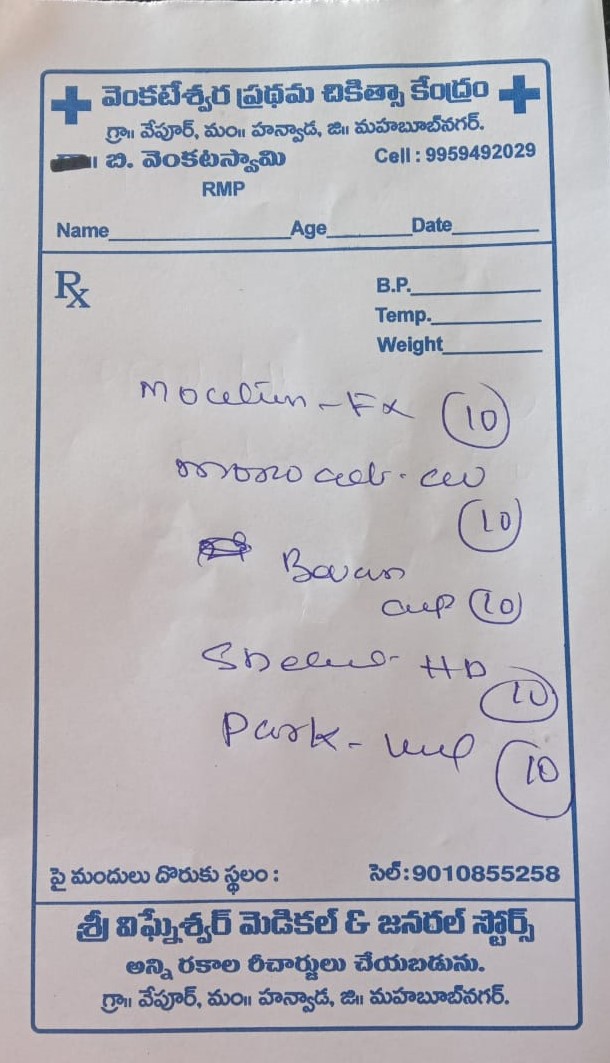 వెంకటేశ్వర ప్రథమ చికిత్సా కేంద్రం
గ్రా॥ వేపూర్, మం॥ హన్వాడ, జి॥ మహబూబ్‌నగర్.
బి. వెంకటస్వామి Cell : 9959492029
RMP
Name Age Date
Rx
B.P.
Temp.
Weight
10
10
10
HD
10
Park-
10
పై మందులు దొరుకు స్థలం : సెల్:9010855258
శ్రీ విఘ్నేశ్వర్ మెడికల్ & జనరల్ స్టోర్స్
అన్ని రకాల రీచార్జులు చేయబడును.
గ్రా॥ వేపూర్, మం॥ హన్వాడ, జి॥ మహబూబ్‌నగర్.